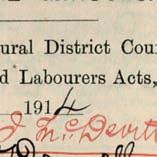 ural District Cou
d Labourers Acts,
1914
J McDevitt